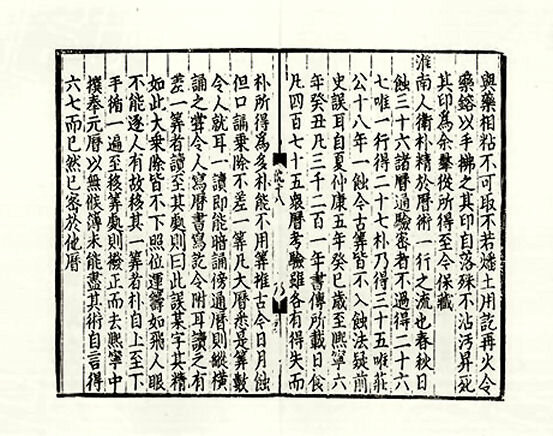 與藥相粘不可取不若燔土用訖再火令
藥鎔以手拂之其印自落殊不沾汚昇死
其印為余羣從所得至今保藏
淮南人衛朴精於曆術一行之流也春秋日
蝕三十六諸曆通驗密者不過得二十六
七唯一行得二十七朴乃得三十五唯莊
公十八年一蝕今古算皆不入蝕法疑前
史誤耳自夏仲康五年癸巳歲至熙寧六
年癸丑凡三千二百一年書傳所載日食
凡四百七十五衆曆考驗雖各有得失而
十八
朴所得為多朴能不用算推古今日月蝕
但口誦乘除不差一算凡大曆悉是算數
令人就耳一讀即能暗誦傍通曆則縱橫
誦之嘗令人寫曆書寫訖令附耳讀之有
差一算者讀至其處則曰此誤某字其精
如此大乘除皆不下照位運籌如飛人眼
不能逐人有故移其一算者朴自上至下
手循一遍至移算處則撥正而去熙寧中
撰奉元曆以無候簿未能盡其術自言得
六七而已然已密於他曆